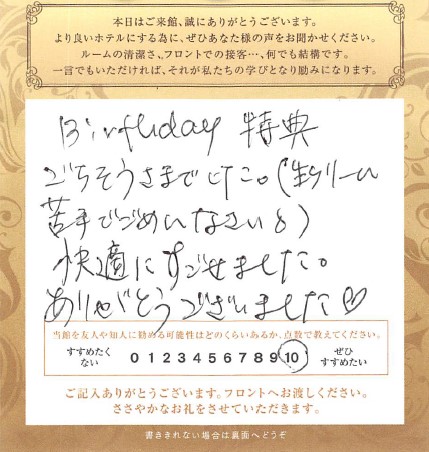 本日はご来館、誠にありがとうございます。
より良いホテルにする為に、ぜひあなた様の声をお聞かせください。
ルームの清潔さ、フロントでの接客…、何でも結構です。
一言でもいただければ、それが私たちの学びとなり励みになります。
Birthday 特典
ごちそうさまでした。(生クリーム
苦手でごめんなさい)
快適にすごせました。
ありがとうございました♡
当館を友人や知人に勧める可能性はどのくらいあるか、点数で教えてください。
すすめたく
ない
0 1 2 3 4 5 6 7 8 9 10
ぜひ
すすめたい
ご記入ありがとうございます。フロントへお渡しください。
ささやかなお礼をさせていただきます。
書ききれない場合は裏面へどうぞ